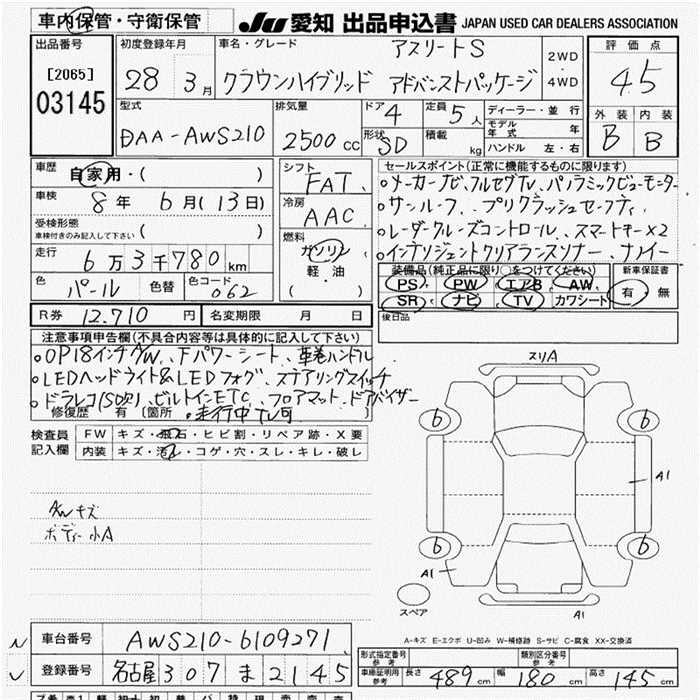 車内保管・守衛保管
JU 愛知 出品申込書 JAPAN USED CAR DEALERS ASSOCIATION
出品番号
[2065]
03145
初度登録年月
28 3月
車名・グレード
アスリートS
クラウンハイブリッド アドバンストパッケージ
2WD
4WD
評価点
4.5
外装 内装
B B
型式
DAA-AWS210
排気量
2500cc
ドア 4
定員 5人
形状 SD
積載 kg
ディーラー・並行
モデル年式 年
ハンドル 左・右
車歴 自家用・( )
車検 8年 6月(13日)
受検形態
車検付きのみ記入して下さい ( )
走行 6万3千780km
色 パール 色替 色コード 062
シフト
FAT
冷房
AAC
燃料
ガソリン
軽油
( ・ )
セールスポイント(正常に機能するものに限ります)
○メーカーナビ、フルセグTV、パノラミックビューモニター
○サンルーフ、プリクラッシュセーフティ
○レーダークルーズコントロール、スマートキー×2
○インテリジェントクリアランスソナー、ナノイー
装備品(純正品に限り○をつけてください)
PS PW エアB AW
SR ナビ TV カワシート
新車保証書
有 無
後日品
R券 12.710円 名変期限 月 日
注意事項申告欄(不具合内容等は具体的に記入して下さい)
○OP18インチAW、Fパワーシート、革巻ハンドル
○LEDヘッドライト&LEDフォグ、ステアリングスイッチ
○ドラレコ(SDタリ)、ビルトインETC、フロアマット、ドアバイザー
修復歴 有(箇所 ○走行中TV可
検査員記入欄
FW キズ・飛石・ヒビ割・リペア跡・X要
内装 キズ・汚れ・コゲ・穴・スレ・キレ・破レ
AWキズ
ボディー小A
スリA
b b
A1
b b
A1
スペア
A1
A-キズ E-エクボ U-凹み W-補修跡 S-サビ C-腐食 XX-交換済
車台番号 AWS210-6109271
登録番号 名古屋307ま2145
形式指定番号 参考
類別区分番号 参考
車庫証明用 参考
長さ 489cm 幅 180cm 高さ 145cm